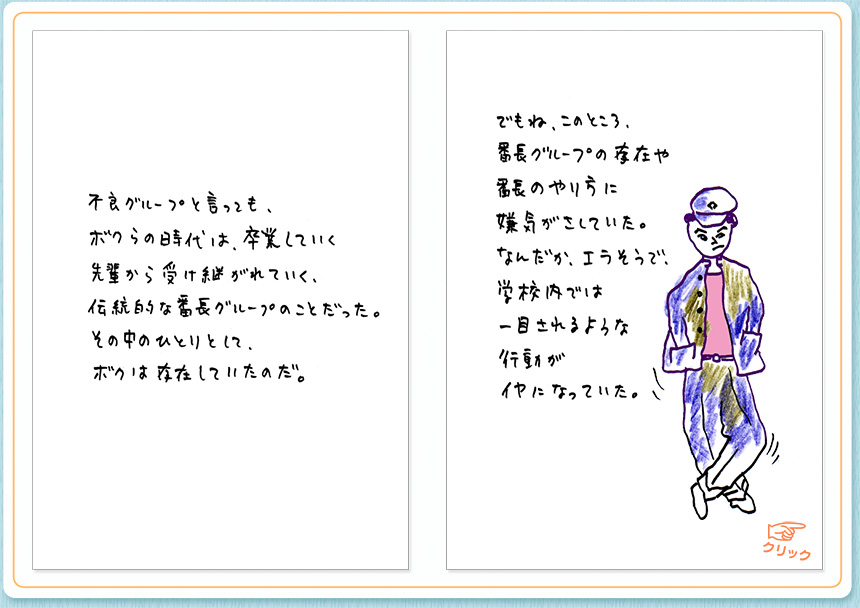 不良グループと言っても、
ボクらの時代は、卒業していく
先輩から受け継がれていく、
伝統的な番長グループのことだった。
その中のひとりとして、
ボクは存在していたのだ。
でもね、このところ、
番長グループの存在や
番長のやり方に
嫌気がさしていた。
なんだか、エラそうで、
学校内では
一目されるような
行動が
イヤになっていた。
クリック